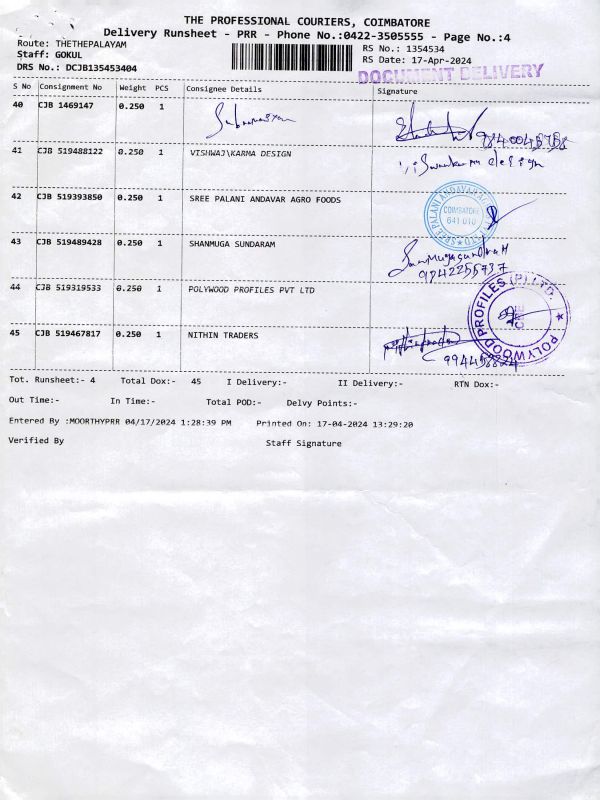 THE PROFESSIONAL COURIERS, COIMBATORE
Delivery Runsheet - PRR - Phone No.:0422-3505555 - Page No.:4
Route: THETHEPALAYAM RS No.: 1354534
Staff: GOKUL RS Date: 17-Apr-2024
DRS No.: DCJB135453404 DOCUMENT DELIVERY
S No Consignment No Weight PCS Consignee Details Signature
40 CJB 1469147 0.250 1 Subramaniyam
41 CJB 519488122 0.250 1 VISHWAJ\KARMA DESIGN
design
42 CJB 519393850 0.250 1 SREE PALANI ANDAVAR AGRO FOODS
SREE PALANI ANDAVAR
COIMBATORE
641 010
43 CJB 519489428 0.250 1 SHANMUGA SUNDARAM
44 CJB 519319533 0.250 1 POLYWOOD PROFILES PVT LTD
POLYWOOD PROFILES (P) LTD.
CBE
45 CJB 519467817 0.250 1 NITHIN TRADERS
Tot. Runsheet:- 4 Total Dox:- 45 I Delivery:- II Delivery:- RTN Dox:-
Out Time:- In Time:- Total POD:- Delvy Points:-
Entered By :MOORTHYPRR 04/17/2024 1:28:39 PM Printed On: 17-04-2024 13:29:20
Verified By Staff Signature